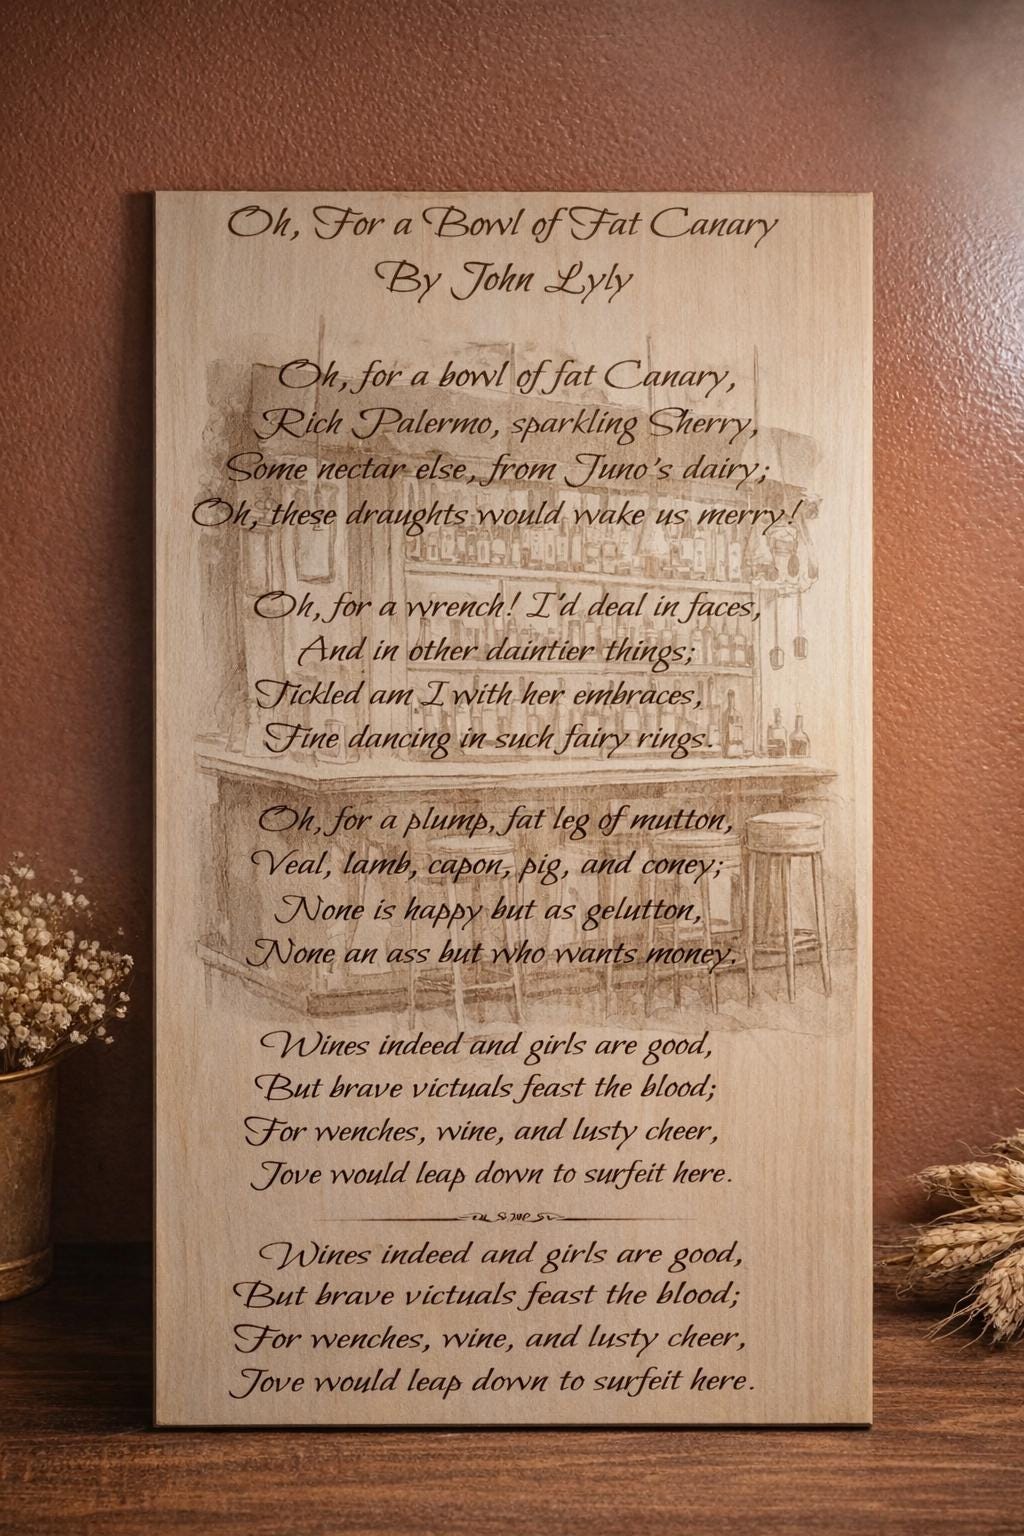 Oh, For a Bowl of Fat Canary
By John Lyly
Oh, for a bowl of fat Canary,
Rich Palermo, sparkling Sherry,
Some nectar else, from Juno's dairy;
Oh, these draughts would wake us merry!
Oh, for a wrench! I'd deal in faces,
And in other daintier things;
Tickled am I with her embraces,
Fine dancing in such fairy rings.
Oh, for a plump, fat leg of mutton,
Veal, lamb, capon, pig, and coney;
None is happy but as gelutton,
None an ass but who wants money.
Wines indeed and girls are good,
But brave victuals feast the blood;
For wenches, wine, and lusty cheer,
Jove would leap down to surfeit here.
Wines indeed and girls are good,
But brave victuals feast the blood;
For wenches, wine, and lusty cheer,
Jove would leap down to surfeit here.